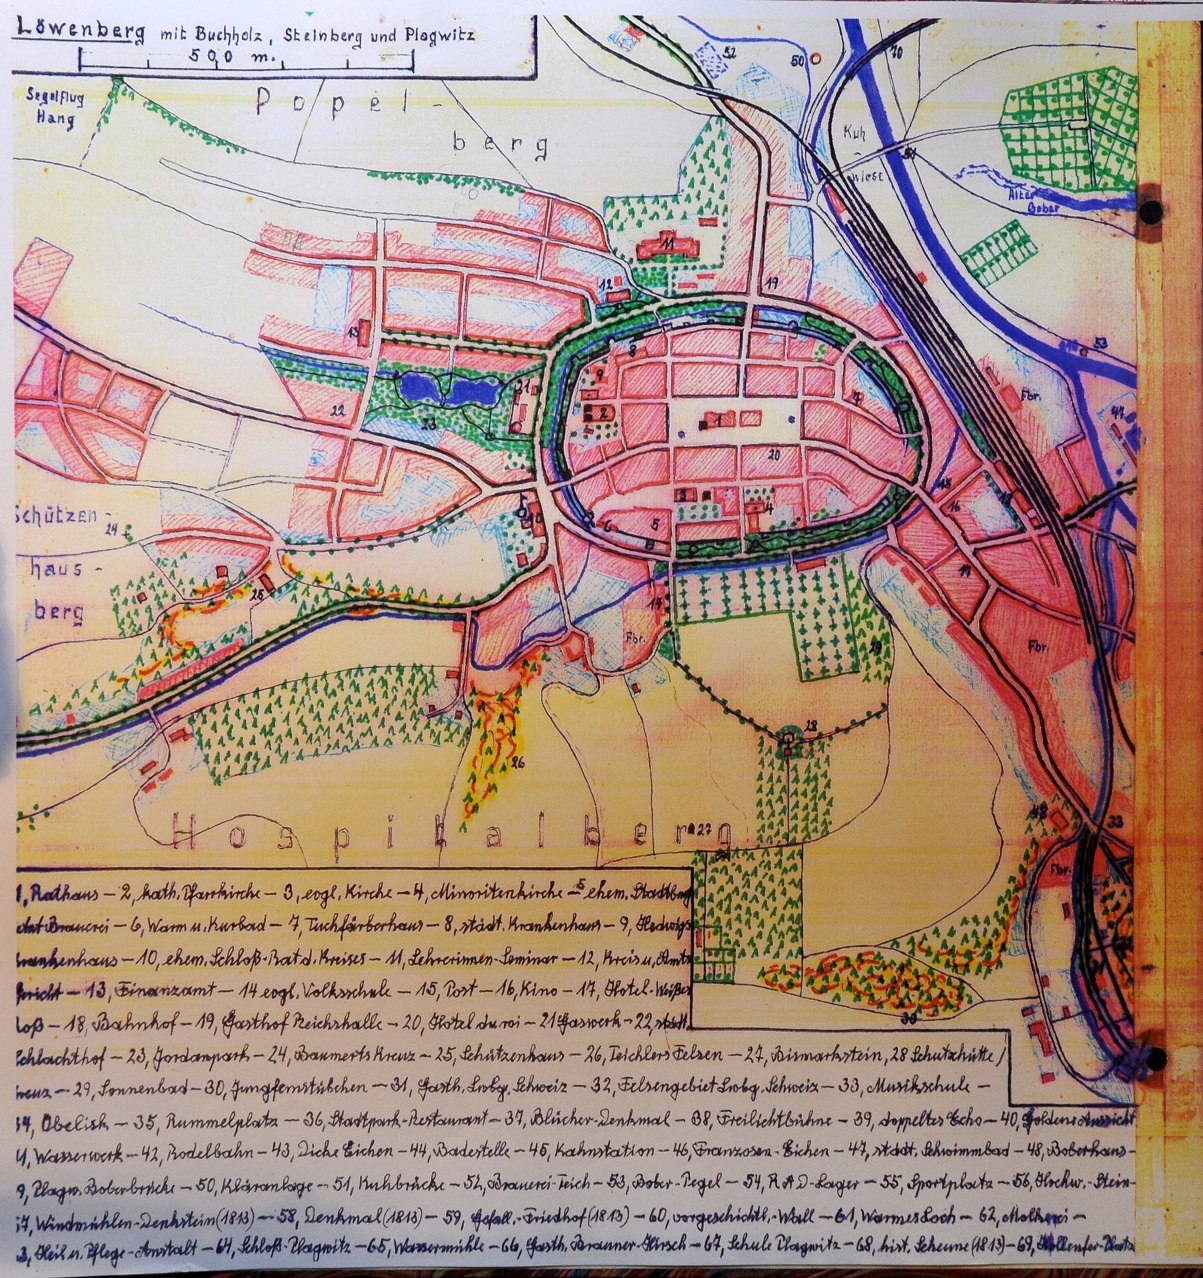 Löwenberg mit Buchholz, Steinberg und Plagwitz
500 m.
Segelflug
Hang
Popel-
berg
Kuh
-
wiese
Alter
Bober
52
50
70
51
11
12
19
13
53
Fbr.
47
8
9
21
2
1
7
22
23
20
3
4
15
16
18
5
6
10
Schützen-
24
haus-
berg
25
14
17
Fbr.
Fbr.
29
28
26
48
33
Hospitalberg
27
Fbr.
30
31
1, Rathaus – 2, kath. Pfarrkirche – 3, evgl. Kirche – 4, Minoritenkirche – 5 ehem. Stadtbrg
Brauerei – 6, Warm u. Kurbad – 7, Tuchfärberhaus – 8, städt. Krankenhaus – 9, Hedwigs
krankenhaus – 10, ehem. Schloß-Bat. d. Kreises – 11, Lehrerinnen-Seminar – 12, Kreis u. Amts
gericht – 13, Finanzamt – 14 evgl. Volksschule – 15, Post – 16, Kino – 17, Hotel-Weißes
loß – 18, Bahnhof – 19, Gasthof Reichshalle – 20, Hotel du roi – 21 Gaswerk – 22, städt.
Schlachthof – 23, Jordanpark – 24, Baumerts Kreuz – 25, Schützenhaus – 26, Teichlers Felsen – 27, Bismarkstein, 28 Schutzhütte/
kreuz – 29, Sonnenbad – 30, Jungfernstübchen – 31, Gasth. Lwbg. Schweiz – 32, Felsengebiet Lwbg. Schweiz – 33, Musikschule –
34, Obelisk – 35, Rummelplatz – 36, Stadtpark-Restaurant – 37, Blücher-Denkmal – 38, Freilichtbühne – 39, doppeltes Echo – 40, Goldene Aussicht
41, Wasserwerk – 42, Rodelbahn – 43, Dicke Eichen – 44, Badestelle – 45, Kahnstation – 46, Franzosen-Eichen – 47, städt. Schwimmbad – 48, Boberhaus –
9, Plagw. Boberbrücke – 50, Kläranlage – 51, Kuhbrücke – 52, Brauerei-Teich – 53, Bober-Pegel – 54, RAD-Lager – 55, Sportplatz – 56, Hochw.-Stein-
57, Windmühlen-Denkstein (1813) – 58, Denkmal (1813) – 59, Gefall.-Friedhof (1813) – 60, vorgeschichtl.-Wall – 61, Warmes Loch – 62, Molkerei –
3, Heil u. Pflege-Anstalt – 64, Schloß-Plagwitz – 65, Wassermühle – 66, Gasth. Brauner-Hirsch – 67, Schule Plagwitz – 68, hist. Scheune (1813) – 69,